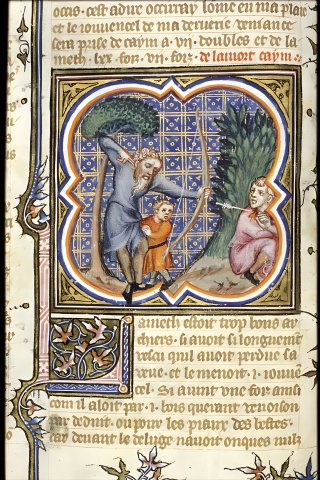 occis. cest adire occiray lome en ma plaie
et le iouuencel de ma derurie. veniance
sera prise de caym a .vii. doubles et de la
meth .lxx. foiz .vii. foiz. de lamort caym.
Lameth estoit trop bons ar
chiers. si auoit si longuement
vescu quil auoit perdue sa
veue. et le menoit .i. iouuen
cel. Si auint vne foiz ainsi
com il aloit par .i. bois querant venoison
par deduit. ou pour les piaux des bestes.
car deuant le deluge nauoit onques nulz